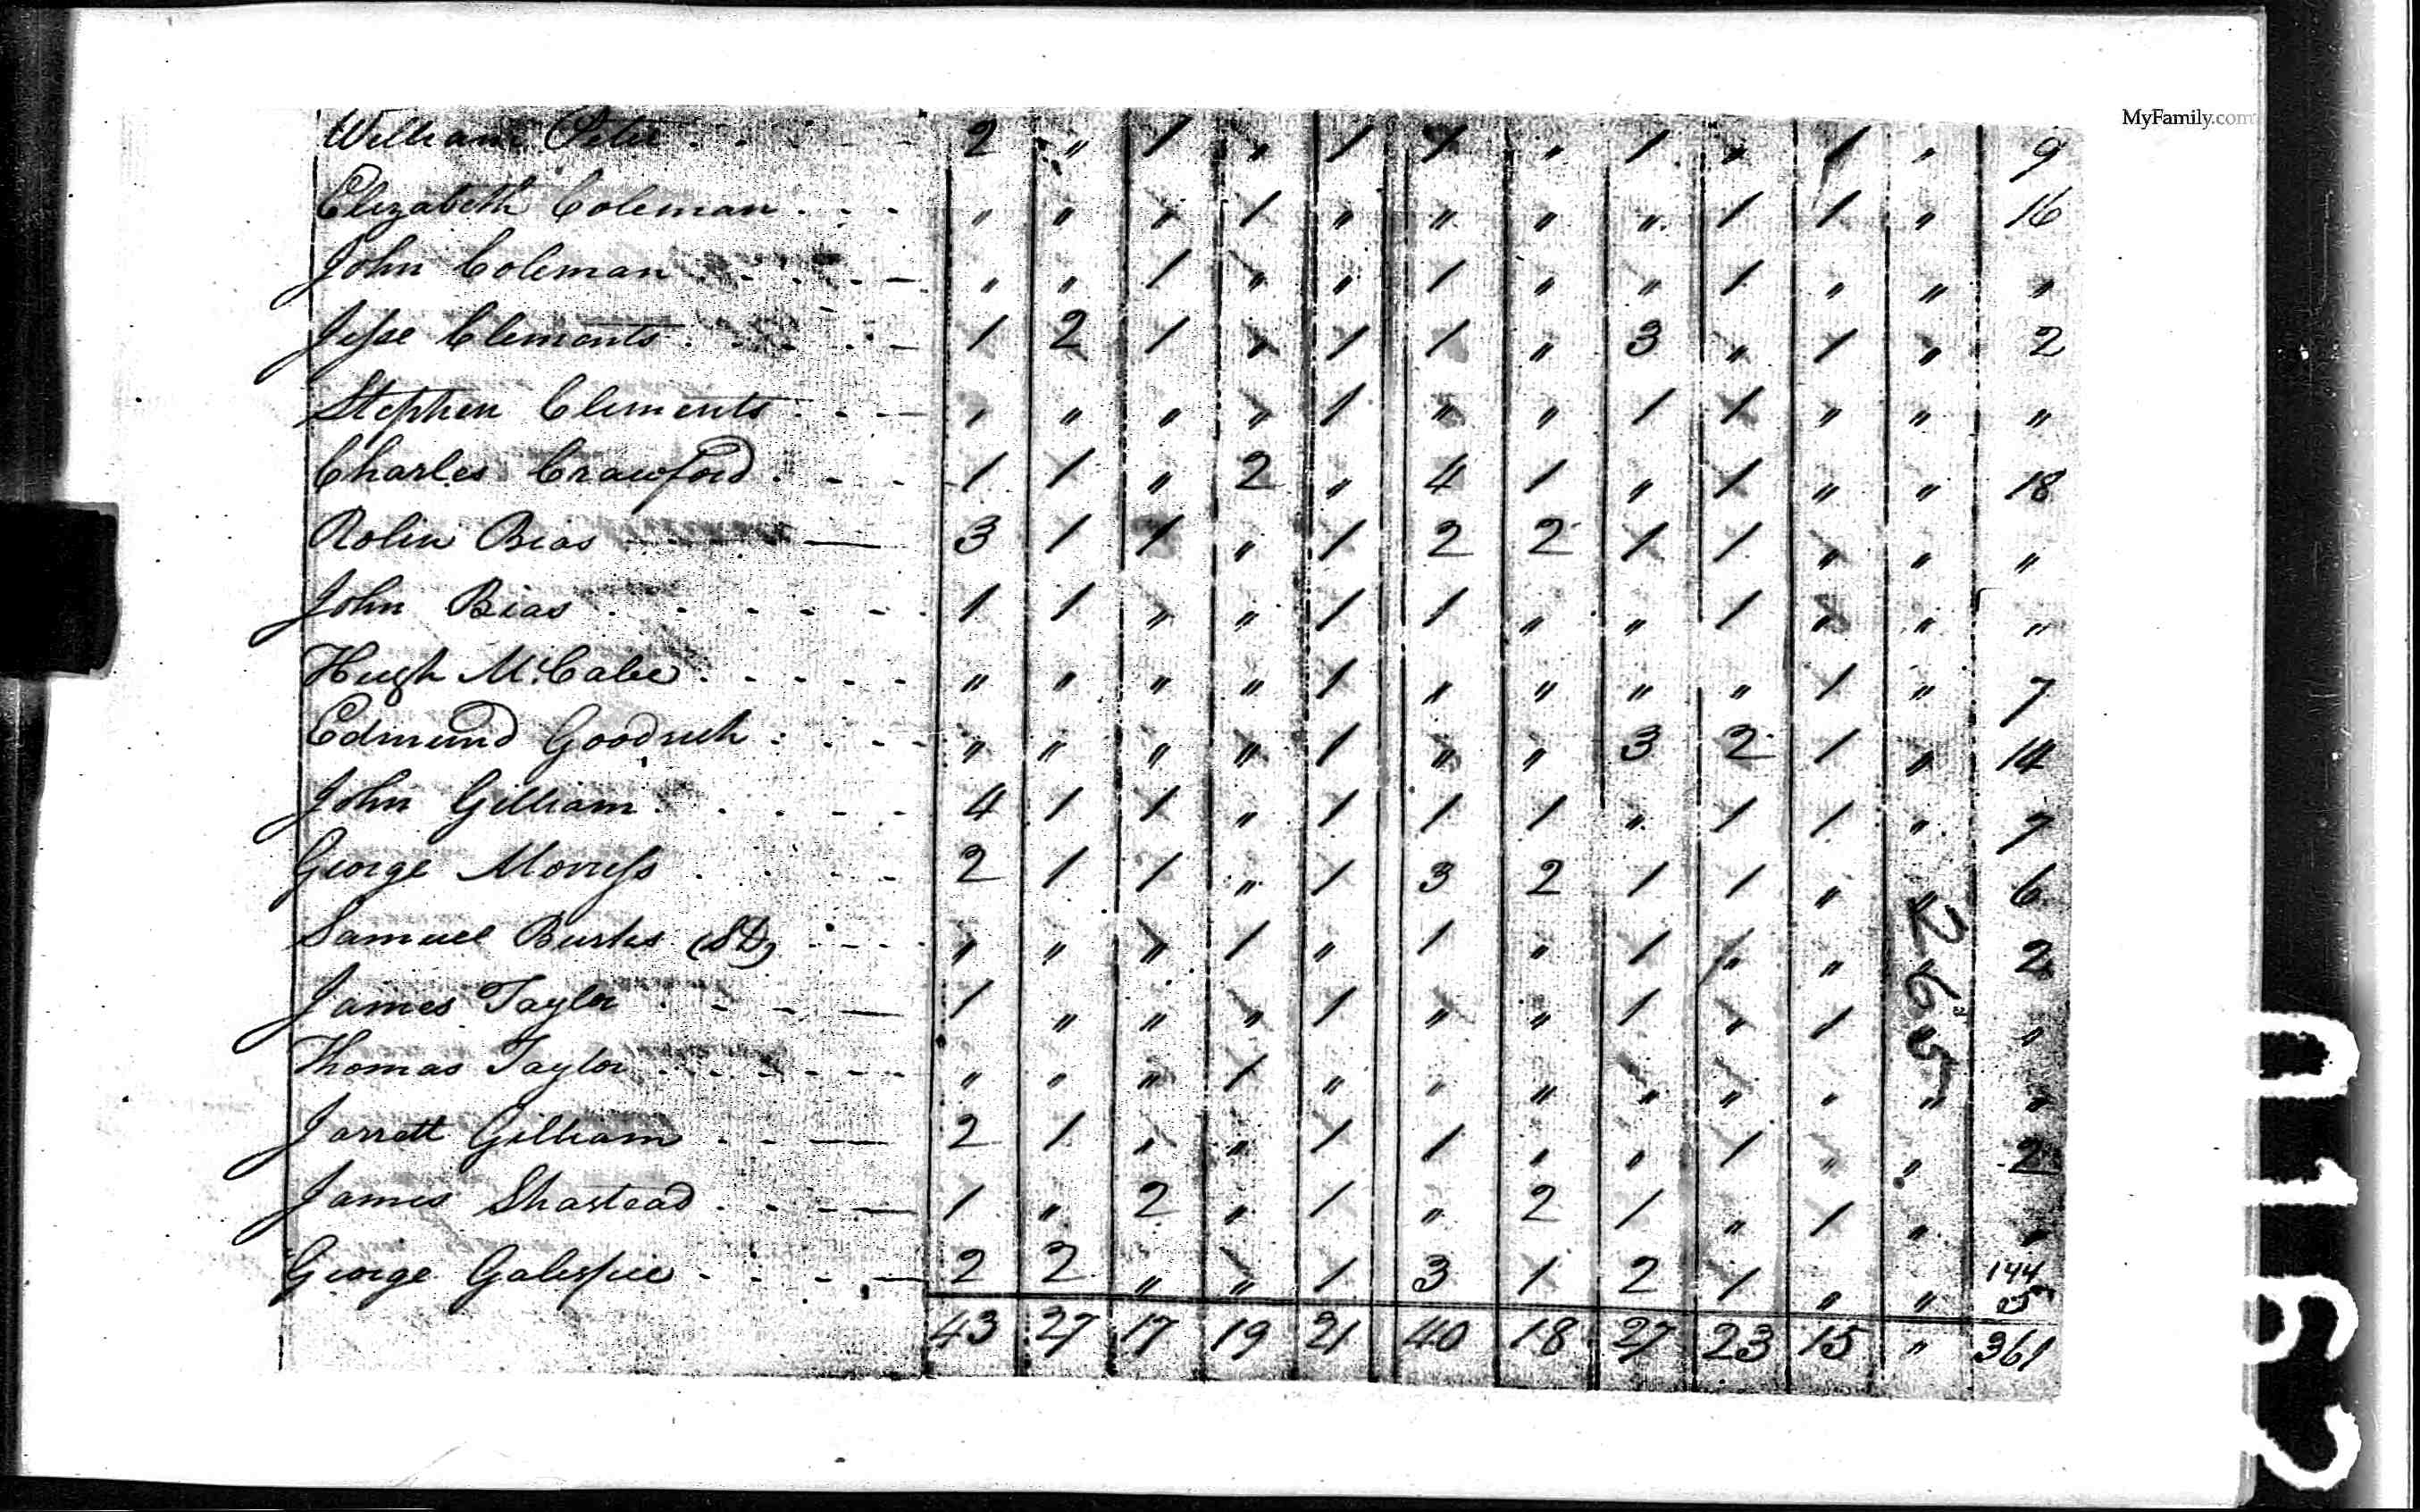 MyFamily.com
William . . . - - 2 " 1 " 1 1 " 1 " 1 " 9
Elizabeth Coleman . . - " " " 1 " " " " 1 1 " 16
John Coleman . . . - " " 1 " " 1 " " 1 " " "
Jesse Clements . . . - 1 2 1 " 1 1 " 3 " 1 " 2
Stephen Clements . - - " " " " 1 " " 1 1 " " "
Charles Crawford . - - 1 1 " 2 " 4 1 " 1 " " 18
Rolin Bias — 3 1 1 " 1 2 2 1 1 " " "
John Bias . . . . - - 1 1 " " 1 1 " " 1 " " "
Hugh McCabe . . . - - " " " " 1 " " " " 1 " 7
Edmund Goodrich . . . - " " " " 1 " " 3 2 1 " 14
John Gilliam . . . - - 4 1 1 " 1 1 1 " 1 1 " 7
George Morriss . . . - - 2 1 1 " 1 3 2 1 1 " " 6
Samuel Burks . . - - " " " 1 " 1 " 1 " " 2
James Taylor . - - — 1 " " " 1 " " 1 " 1 " "
Thomas Taylor . . - - - " " " 1 " " " " " " " "
Jarrett Gilliam . - - — 2 1 " " 1 1 " " 1 " " 2
James Shastead . . - — 1 " 2 " 1 " 2 1 " 1 " "
George Galespie . - - — 2 2 " " 1 3 1 2 1 " " 144
43 27 17 19 21 40 18 27 23 15 " 361
265
0162